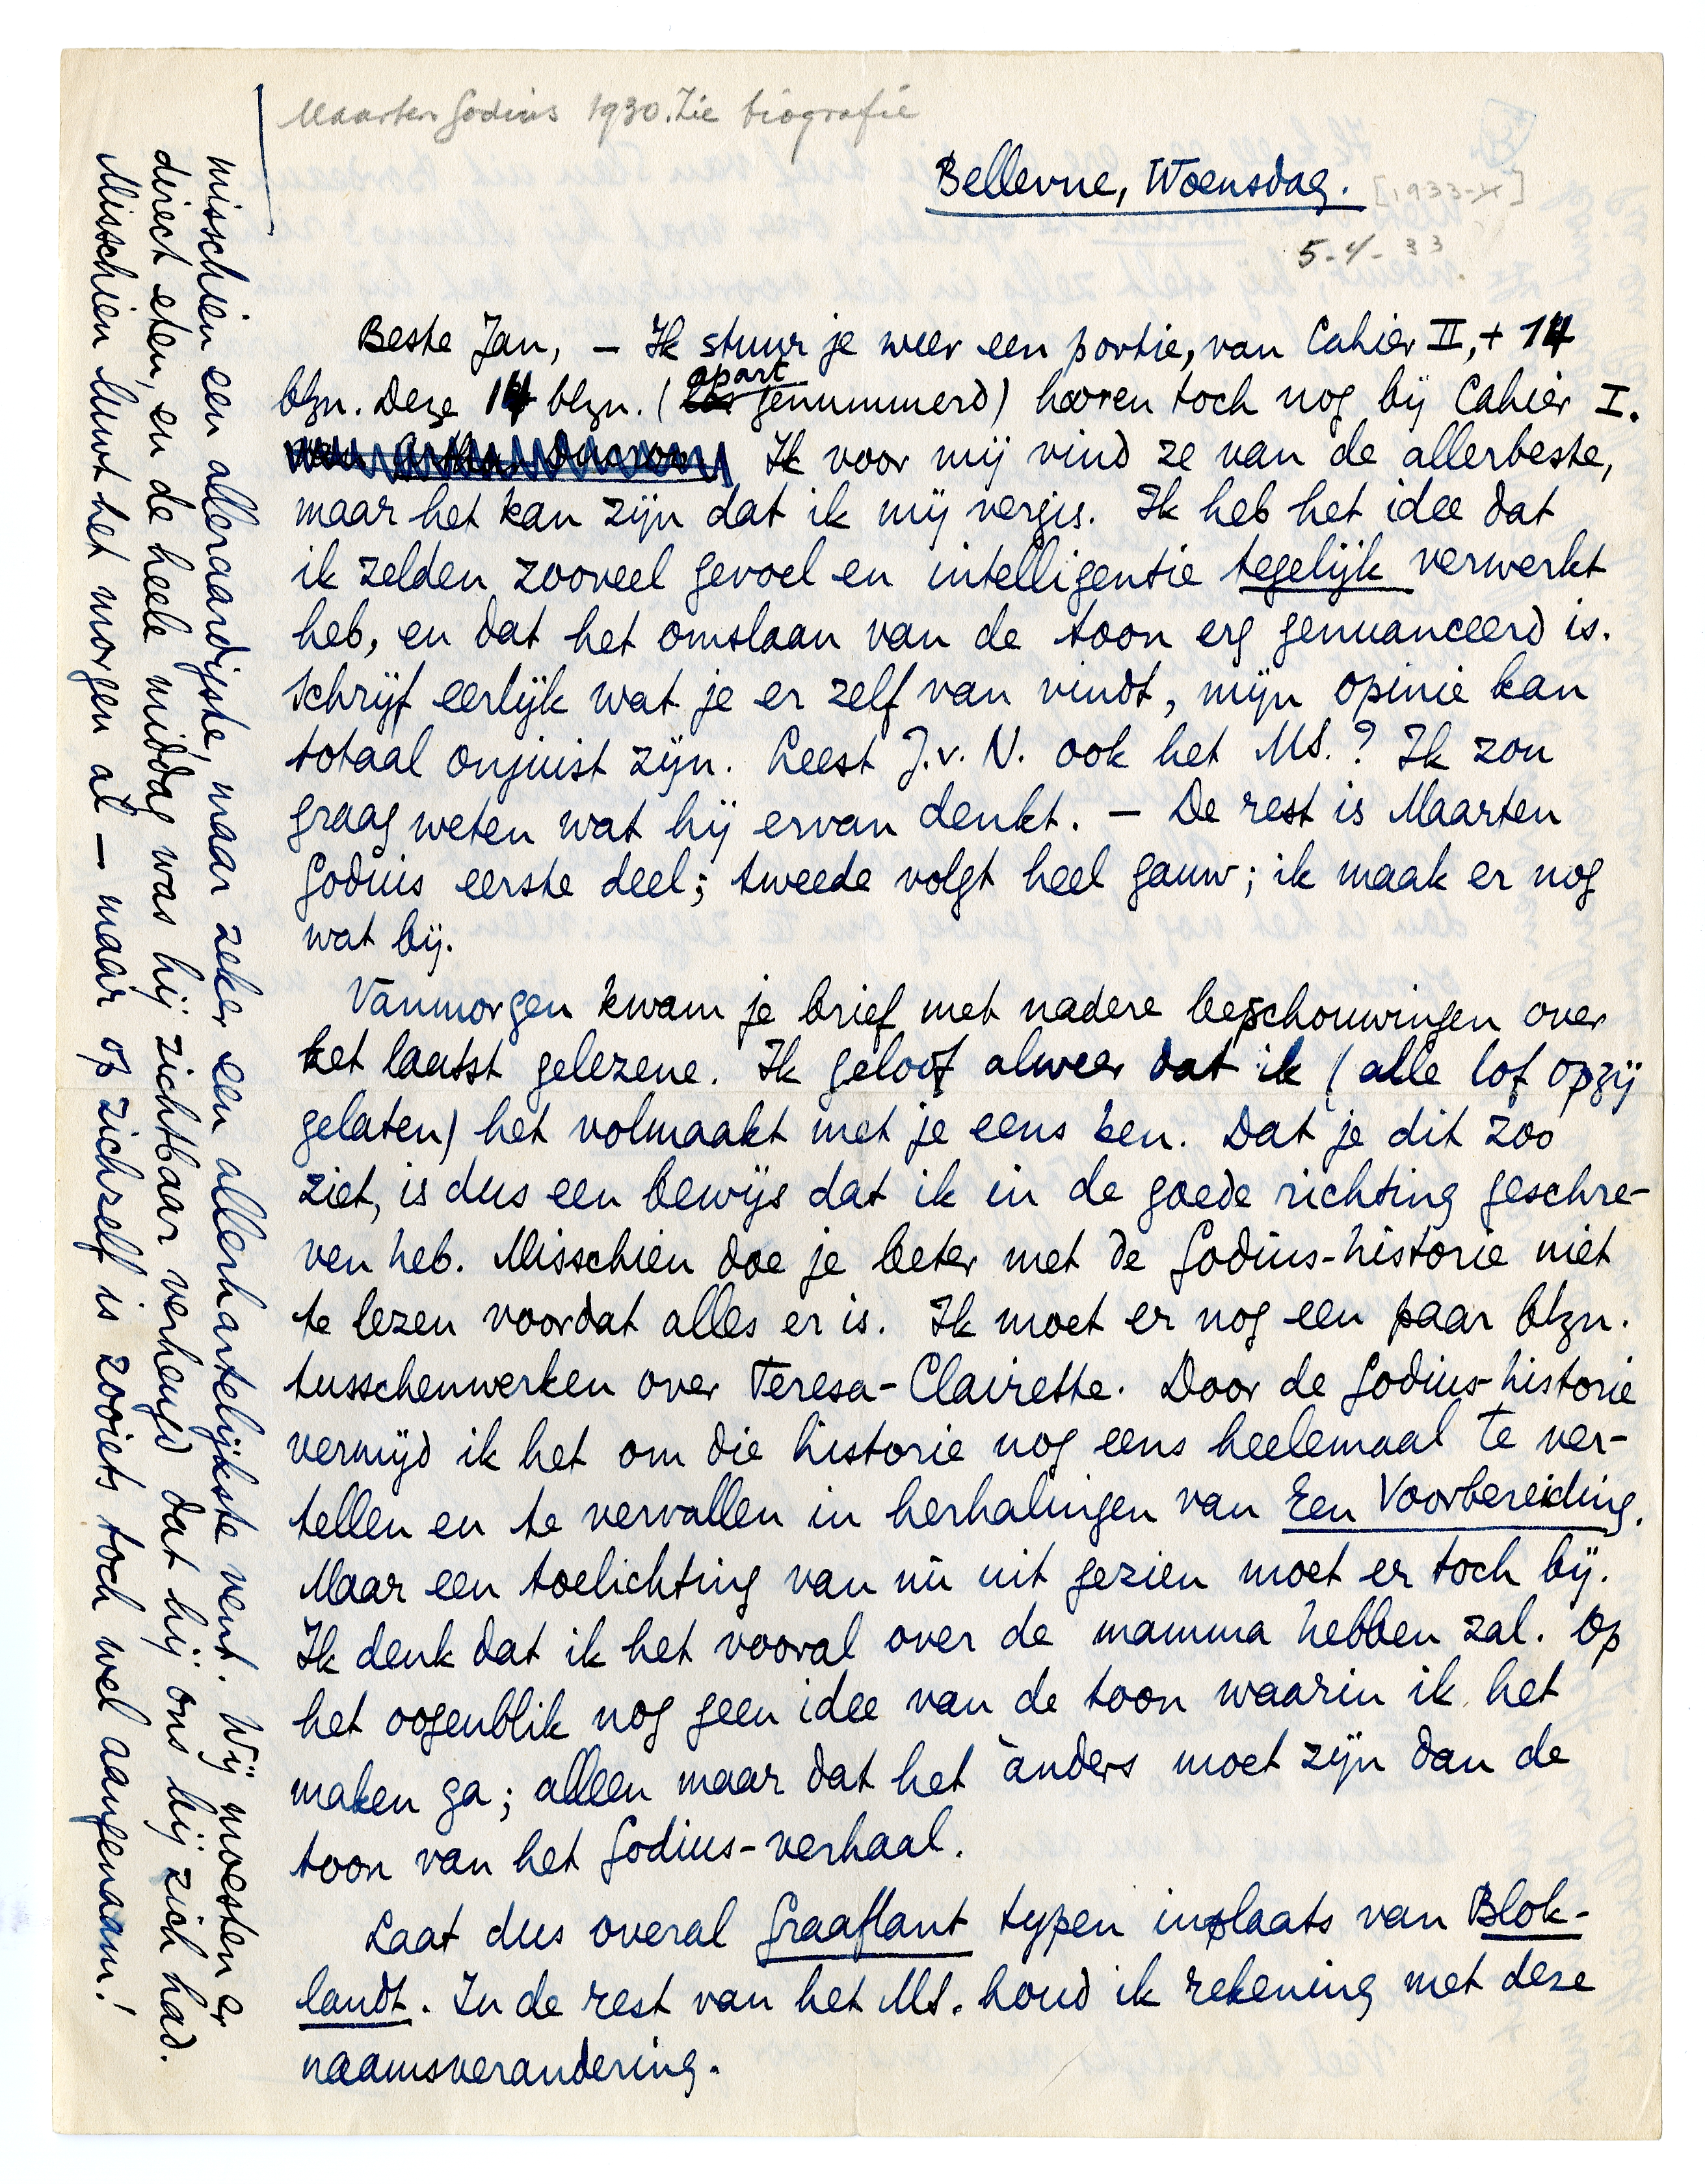 Maarten Godius 1930. Zie biografie
Bellevue, Woensdag.
[1933-X]
5-4-33
Beste Jan, – Ik stuur je weer een portie, van Cahier II, + 14
blzn. Deze 14 blzn. (apart genummerd) hooren toch nog bij Cahier I.
Ik voor mij vind ze van de allerbeste,
maar het kan zijn dat ik mij vergis. Ik heb het idee dat
ik zelden zooveel gevoel en intelligentie tegelijk verwerkt
heb, en dat het omslaan van de toon erg genuanceerd is.
Schrijf eerlijk wat je er zelf van vindt, mijn opinie kan
totaal onjuist zijn. Leest J. v. N. ook het MS.? Ik zou
graag weten wat hij ervan denkt. – De rest is Maarten
Godius eerste deel; tweede volgt heel gauw; ik maak er nog
wat bij.
Vanmorgen kwam je brief met nadere beschouwingen over
het laatst gelezene. Ik geloof alweer dat ik (alle lof opzij
gelaten) het volmaakt met je eens ben. Dat je dit zoo
ziet, is dus een bewijs dat ik in de goede richting geschre-
ven heb. Misschien doe je beter met de Godius-historie niet
te lezen voordat alles er is. Ik moet er nog een paar blzn.
tusschenwerken over Teresa-Clairette. Door de Godius-historie
vermijd ik het om die historie nog eens heelemaal te ver-
tellen en te vervallen in herhalingen van Een Voorbereiding.
Maar een toelichting van nù uit gezien moet er toch bij.
Ik denk dat ik het vooral over de mamma hebben zal. Op
het oogenblik nog geen idee van de toon waarin ik het
maken ga; alleen maar dat het ànders moet zijn dan de
toon van het Godius-verhaal.
Laat dus overal Graaflant typen inplaats van Blok-
landt. In de rest van het MS. houd ik rekening met deze
naamsverandering.
misschien een alleraardigste, maar zeker een allerhartelijkste vent. Wij moesten er
direct eten, en de heele middag was hij zichtbaar verheugd dat hij ons bij zich had.
Misschien luwt het morgen al – maar op zichzelf is zooiets toch wel aangenaam!